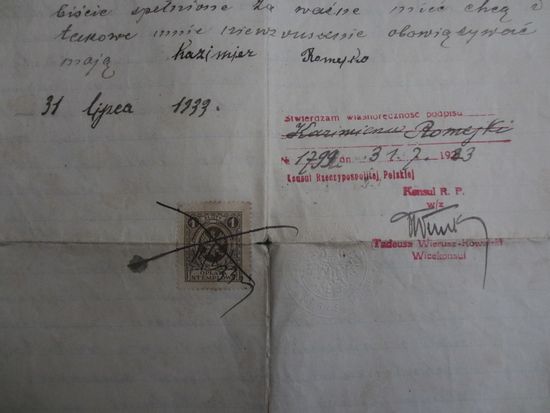 ściście spełnione za ważne mieć chcą i
takowe mnie niewzruszenie obowiązywać
mają Kazimierz Romejko
31 lipca 1933.
Stwierdzam własnoręczność podpisu
Kazimierza Romejki
№ 1799 dn. 31.7. 1933
Konsul Rzeczypospolitej Polskiej
Konsul R. P.
w/z
Tadeusz Wierusz-Kowalski
Wicekonsul
1 1
OPŁATA
STEMPLOWA